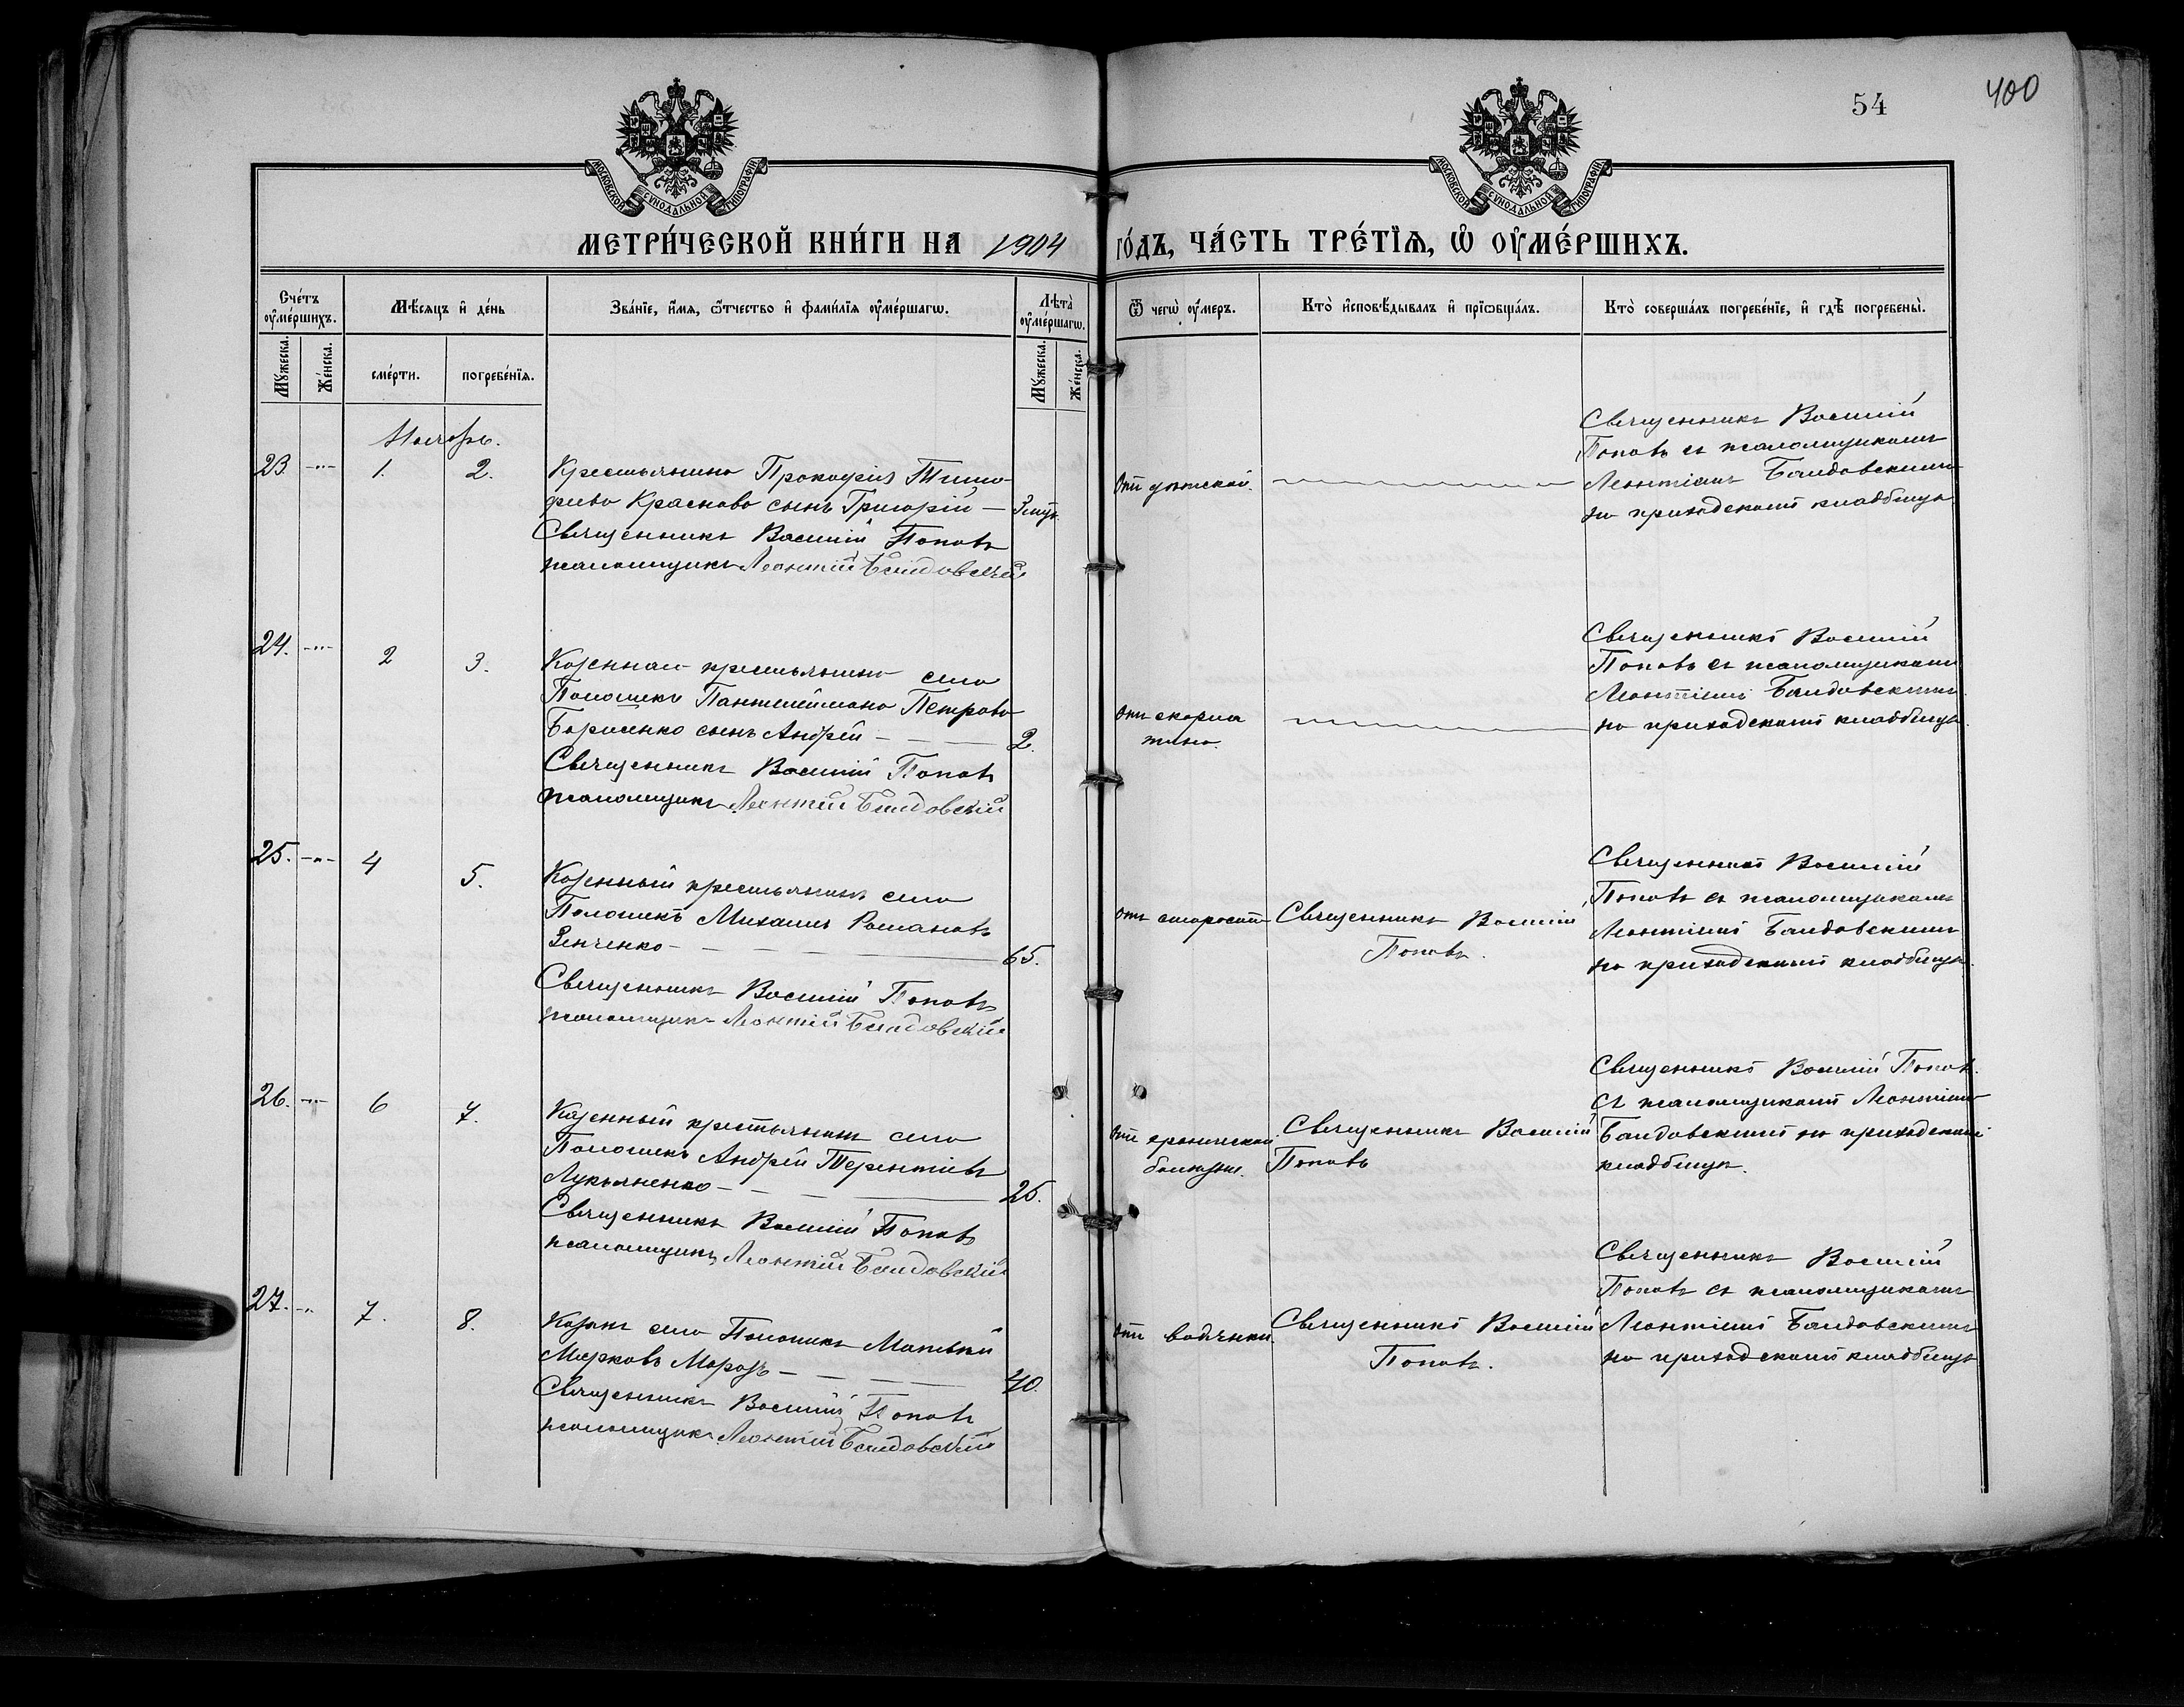 54
400
МОСКОВСКОЙ СѴНОДАЛЬНОЙ ТИПОГРАФІИ
МОСКОВСКОЙ СѴНОДАЛЬНОЙ ТИПОГРАФІИ
МЕТРИ́ЧЕСКОЙ КНИ́ГИ НА 1904 ГО́ДЪ, ЧА́СТЬ ТРЕ́ТІѦ, Ѡ҆ ОУ҆МЕ́РШИХЪ.
Сче́тъ оу҆ме́ршихъ.
Мѣ́сѧцъ и҆ де́нь
Зва́нїе, и҆́мѧ, ѻ҆́тчество и҆ фами́лїѧ оу҆ме́ршагѡ.
Лѣта̀ оу҆ме́ршагѡ.
Ѿ чегѡ̀ оу҆́меръ.
Кто̀ и҆сповѣ́дывалъ и҆ прїѡбща́лъ.
Кто̀ соверша́лъ погребе́нїе, и҆ гдѣ̀ погребены̀.
Мꙋ́жеска.
Же́нска.
сме́рти.
погребе́нїѧ.
Мꙋ́жеска.
Же́нска.
Ноябрь.
23 -"- 1. 2.
Крестьянина Прокофія Тимо-
феева Краснова сынъ Григорій —
Священникъ Василій Поповъ
псаломщикъ Леонтій Баидовскій
Священникъ Василій
Поповъ съ псаломщикомъ
Леонтіемъ Баидовскимъ
на приходскомъ кладбищѣ
24. -"- 2 3.
Казеннаго крестьянина села
Пологикъ Пантелеймона Петрова
Борисенко сынъ Андрей — 2.
Священникъ Василій Поповъ
псаломщикъ Леонтій Баидовскій
отъ скарла
тины.
Священникъ Василій
Поповъ съ псаломщикомъ
Леонтіемъ Баидовскимъ
на приходскомъ кладбищѣ.
25. -"- 4 5.
Казенный крестьянинъ села
Пологикъ Михаилъ Романовъ
Зинченко — 65.
Священникъ Василій Поповъ
псаломщикъ Леонтій Баидовскій
отъ старости
Священникъ Василій
Поповъ.
Священникъ Василій
Поповъ съ псаломщикомъ
Леонтіемъ Баидовскимъ
на приходскомъ кладбищѣ.
26. -"- 6 7.
Казенный крестьянинъ села
Пологикъ Андрей Терентіевъ
Лукьяненко — 25.
Священникъ Василій Поповъ
псаломщикъ Леонтій Баидовскій
отъ хронической
болезни.
Священникъ Василій
Поповъ
Священникъ Василій Поповъ
съ псаломщикомъ Леонтіемъ
Баидовскимъ на приходскомъ
кладбищѣ.
27. -"- 7. 8.
Козакъ села Пологикъ Матвей
Марковъ Морозъ — 40.
Священникъ Василій Поповъ
псаломщикъ Леонтій Баидовскій
отъ водянки.
Священникъ Василій
Поповъ.
Священникъ Василій
Поповъ съ псаломщикомъ
Леонтіемъ Баидовскимъ
на приходскомъ кладбищѣ